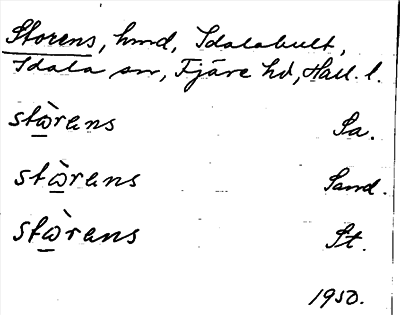 Storens, hmd, Idalabult,
Idala sn, Fjäre hd, Hall. l.
stὼ̲rens Sa.
stὼ̲rens Sand.
stὼ̲rens St.
1950.